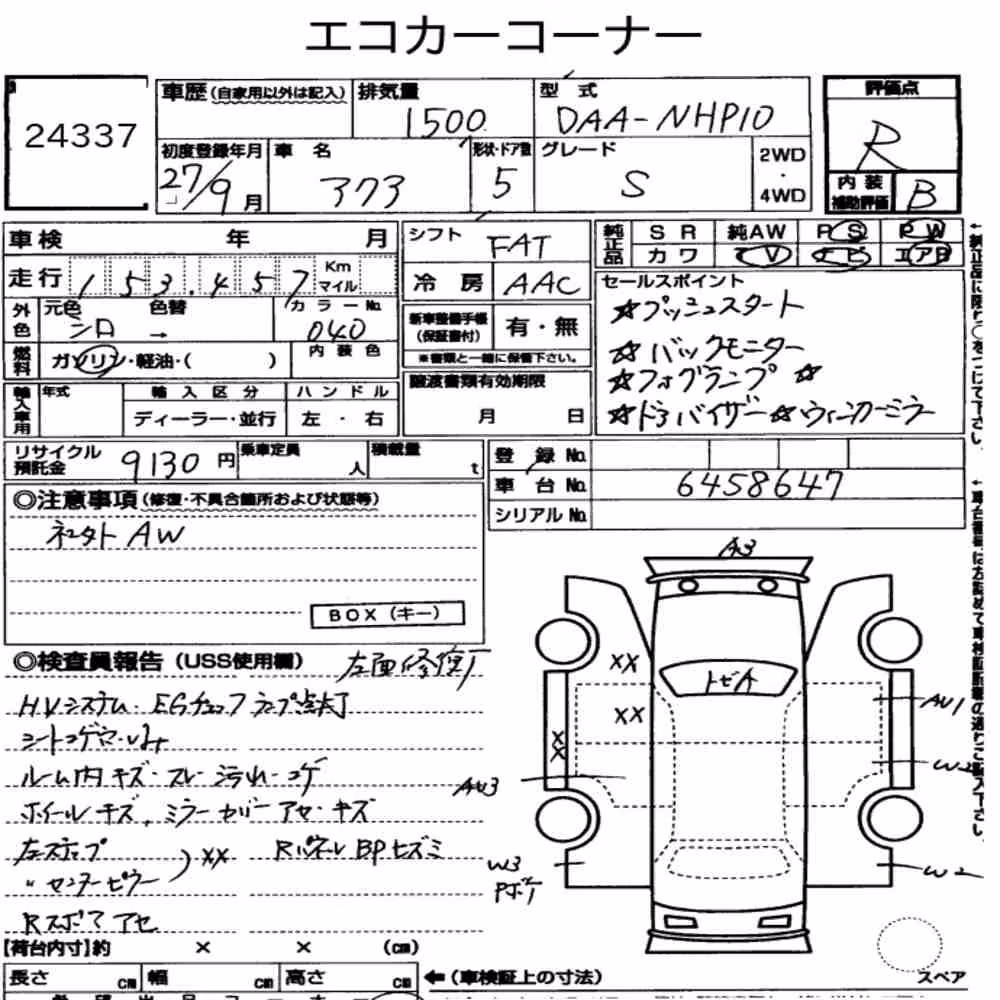 エコカーコーナー
24337
車歴(自家用以外は記入)
排気量
1500
型式
DAA-NHP10
評価点
R
内装
補助評価
B
初度登録年月
27/9月
車名
アクア
形状・ドア数
5
グレード
S
2WD
・
4WD
車検 年 月
シフト
FAT
純正品
SR 純AW PS PW
カワ TV ナビ エアB
走行
153,457
Km
マイル
冷房
AAC
セールスポイント
☆プッシュスタート
☆バックモニター
☆フォグランプ☆
☆ドアバイザー☆ウィンカーミラー
外色
元色
シロ
色替
→
カラーNo.
040
新車整備手帳
(保証書付)
有・無
※書類と一緒に保管下さい。
燃料
ガソリン・軽油・( )
内装色
譲渡書類有効期限
月 日
輸入車用
年式
輸入区分
ディーラー・並行
ハンドル
左・右
リサイクル
預託金
9130円
乗車定員
人
積載量
t
登録No.
車台No.
6458647
シリアルNo.
◎注意事項(修復・不具合箇所および状態等)
社外AW
BOX(キー)
◎検査員報告(USS使用欄)
左面修復有
HVシステム・EGチェックランプ点灯
シートコゲ穴・シミ
ルーム内キズ・スレ・汚れ・コゲ
ホイールキズ、ミラーカバーアセ・キズ
左ステップ
〃センターピラー
)XX
RパネルBPヒズミ
Rスポアアセ
【荷台内寸】約 × × (cm)
長さ cm 幅 cm 高さ cm
←(車検証上の寸法)
AU3
XX
XX
XX
トビA
AU1
AU3
W2
W3
W2
スペア